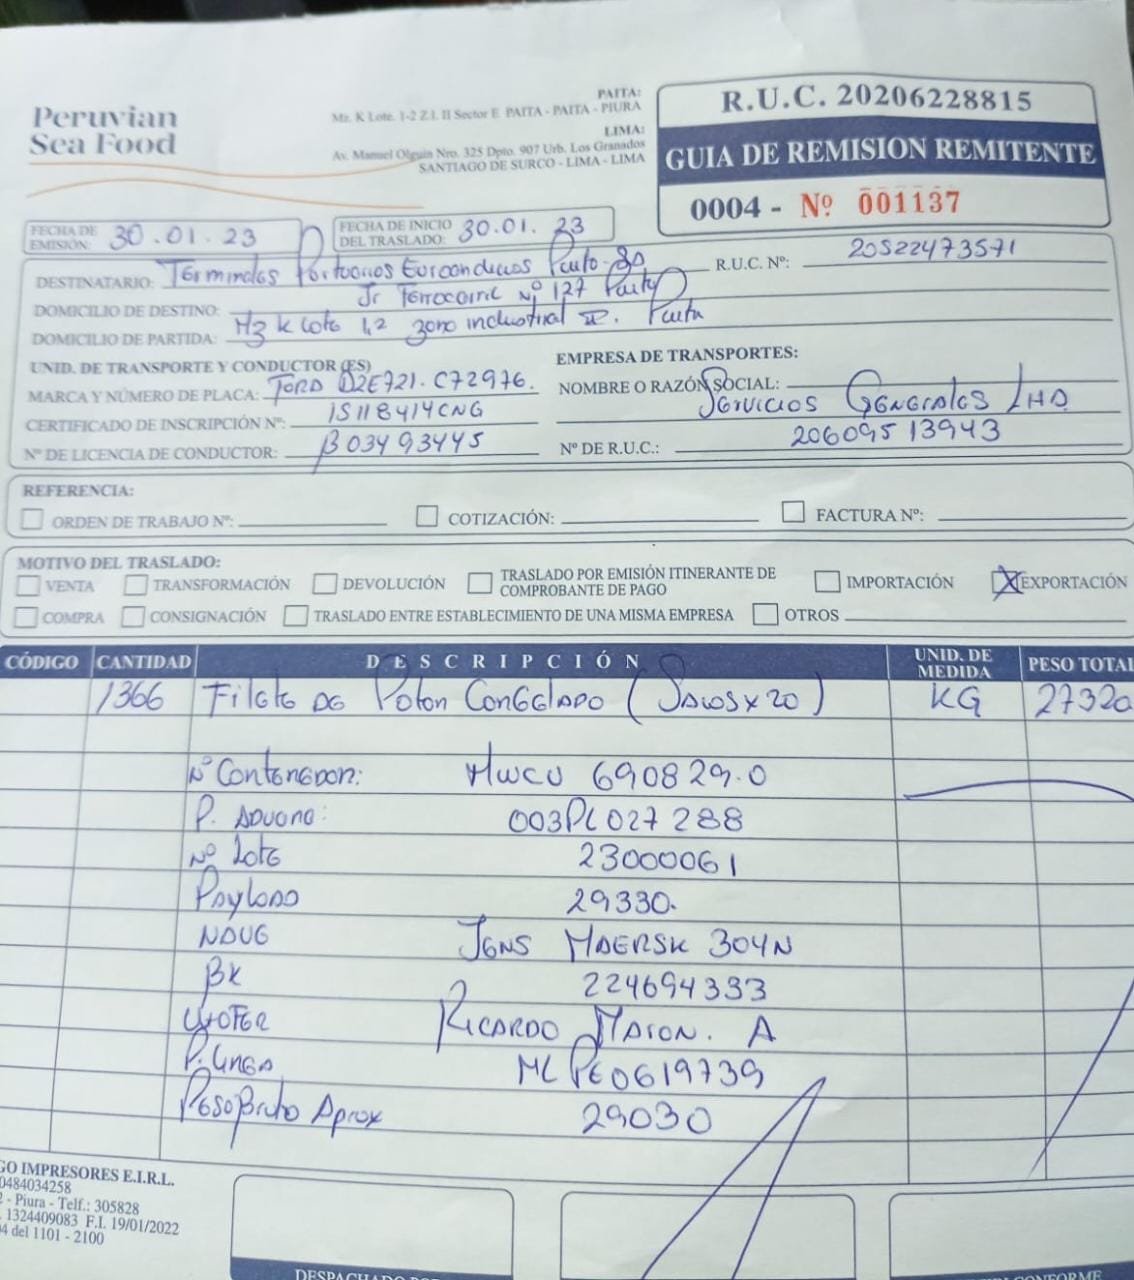 Peruvian
Sea Food
PAITA:
Mz. K Lote. 1-2 Z.I. II Sector E PAITA - PAITA - PIURA
LIMA:
Av. Manuel Olguin Nro. 325 Dpto. 907 Urb. Los Granados
SANTIAGO DE SURCO - LIMA - LIMA
R.U.C. 20206228815
GUIA DE REMISION REMITENTE
0004 - Nº 001137
FECHA DE EMISIÓN: 30.01.23
FECHA DE INICIO DEL TRASLADO: 30.01.23
DESTINATARIO: Terminales Portuarios Euroandinos
R.U.C. Nº: 20522473571
DOMICILIO DE DESTINO: Jr Ferrocarril Nº 127 Paita
DOMICILIO DE PARTIDA: Mz K lote 1,2 zona industrial II. Paita
UNID. DE TRANSPORTE Y CONDUCTOR (ES)
EMPRESA DE TRANSPORTES:
MARCA Y NÚMERO DE PLACA: D2E721. C72976.
NOMBRE O RAZÓN SOCIAL: Servicios Generales
CERTIFICADO DE INSCRIPCIÓN Nº: 15118414CNG
Nº DE LICENCIA DE CONDUCTOR: B03493445
Nº DE R.U.C.: 20609513943
REFERENCIA:
ORDEN DE TRABAJO Nº:
COTIZACIÓN:
FACTURA Nº:
MOTIVO DEL TRASLADO:
VENTA TRANSFORMACIÓN DEVOLUCIÓN TRASLADO POR EMISIÓN ITINERANTE DE COMPROBANTE DE PAGO IMPORTACIÓN X EXPORTACIÓN
COMPRA CONSIGNACIÓN TRASLADO ENTRE ESTABLECIMIENTO DE UNA MISMA EMPRESA OTROS
CÓDIGO CANTIDAD DESCRIPCIÓN UNID. DE MEDIDA PESO TOTAL
1366 Filete de Poton Congelado (Sacos x 20) KG 27320
Nº Contenedor: MWCU 690829.0
P. Aduana: 003PL027288
Nº Lote 23000061
Payload 29330.
Nave Jens Maersk 304N
BK 224694333
Chofer Ricardo A
P. Linea ML PE0619739
Peso Bruto Aprox 29030
GO IMPRESORES E.I.R.L.
0484034258
- Piura - Telf.: 305828
1324409083 F.I. 19/01/2022
del 1101 - 2100
DESPACHADO
CONFORME